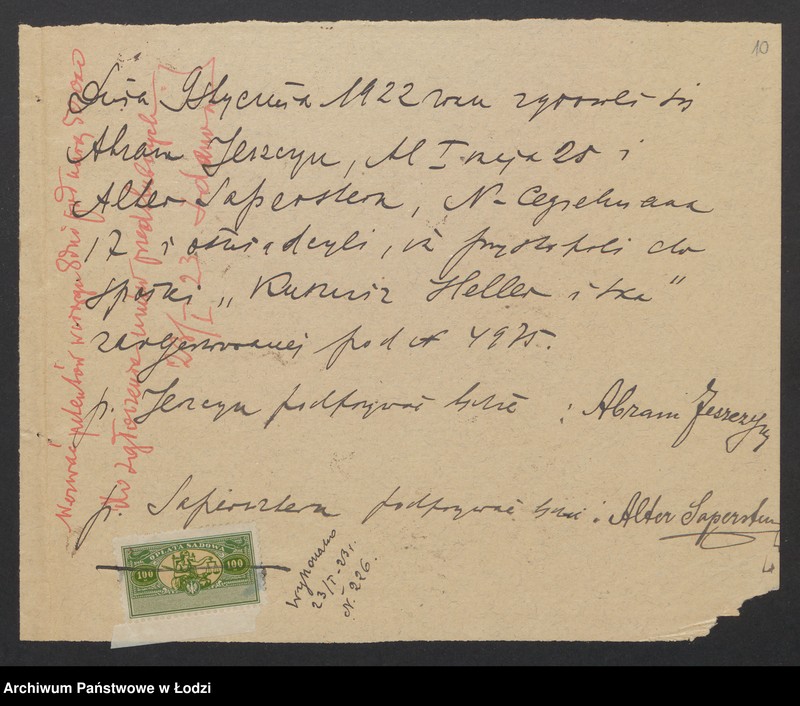 10
Dnia 9 Stycznia 1922 roku zgłosili się
Abram Jeszczyn, Al I maja 28 i
Alter Saperstein, N-Cegielniana
17 i oświadczyli, iż przystąpili do
spółki „Kusznir Heller i Ska”
zarejestrowanej pod № 4975.
p. Jeszczyn podpisywać będzie : Abram Jeszczyn
p. Sapersztein podpisywać będzie : Alter Saperstein
Wezwać petentów w ciągu 8 dni pod
do zgłoszenia
23/I 23
OPŁATA SĄDOWA
100 100
Wykonano
23/I-23 r.
N. 226.
Archiwum Państwowe w Łodzi